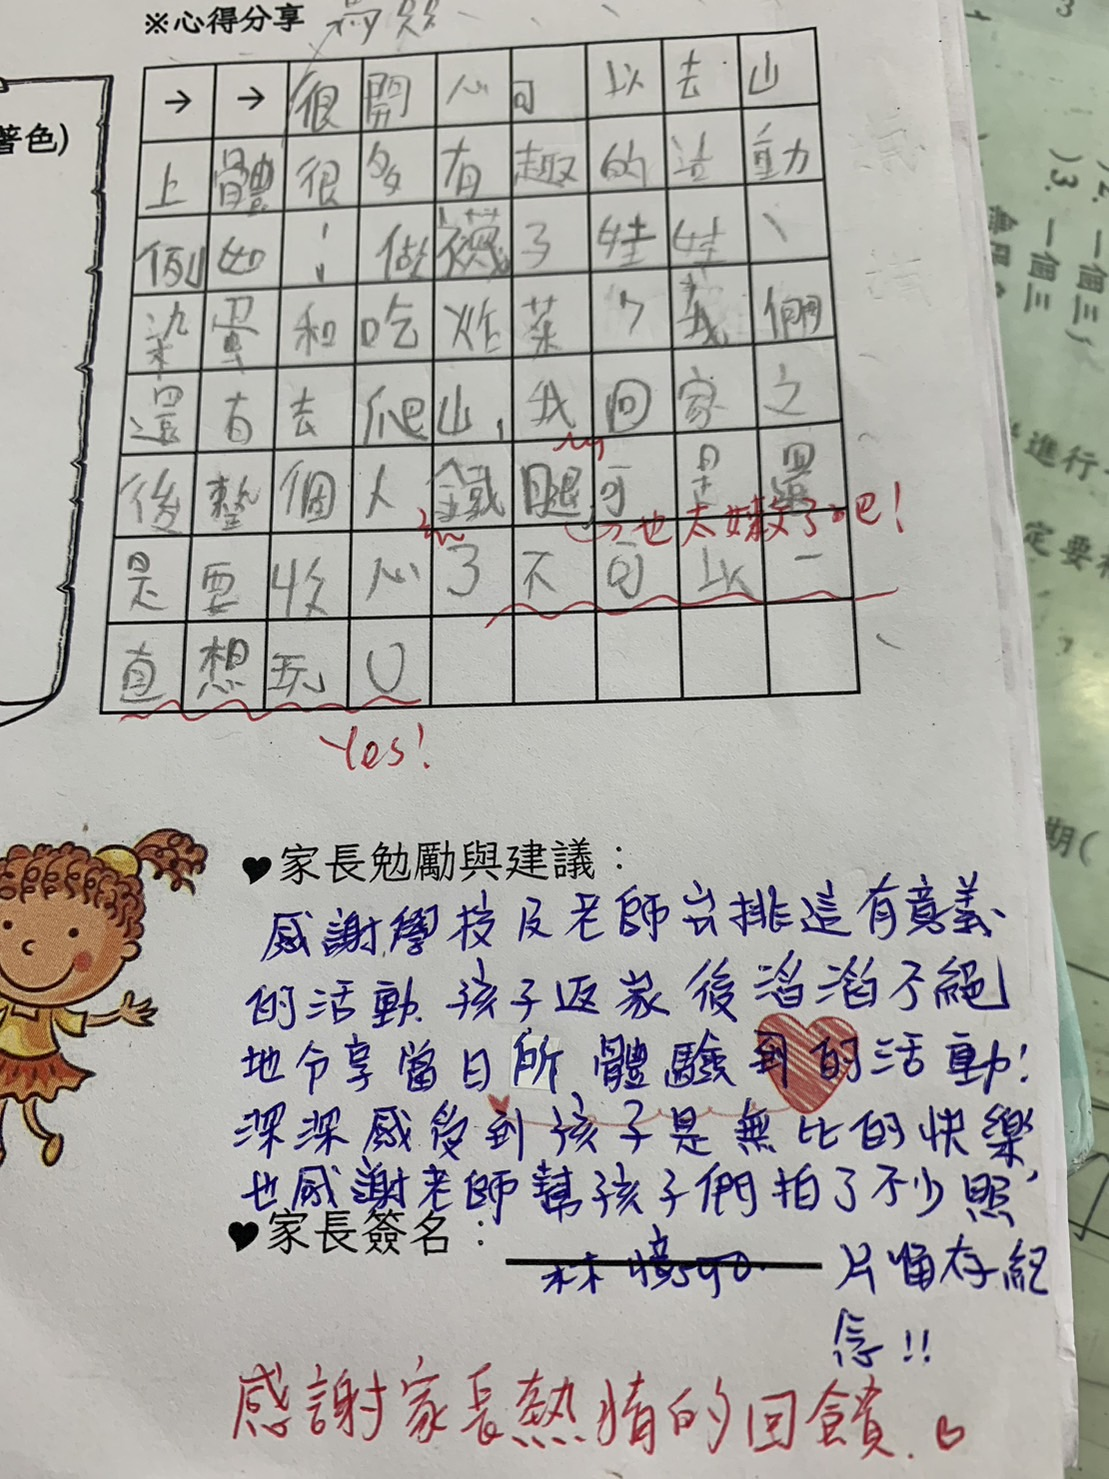 ※心得分享
著色)
→ → 很開心可以去山
上體很多有趣的活動
例如：做襪子娃娃、
染蛋和吃炸菜，我們
還有去爬山，我回家之
後整個人鐵腿可是還
也太嫩了吧！
是要收心了不可以一
直想玩
Yes!
♥家長勉勵與建議：
感謝學校及老師安排這有意義
的活動.孩子返家後滔滔不絕
地分享當日所體驗到的活動!
深深感受到孩子是無比的快樂,
也感謝老師幫孩子們拍了不少照
♥家長簽名：
片留存紀
念!!
感謝家長熱情的回饋.♡
3
一個三
一個三
進行
定要
期(